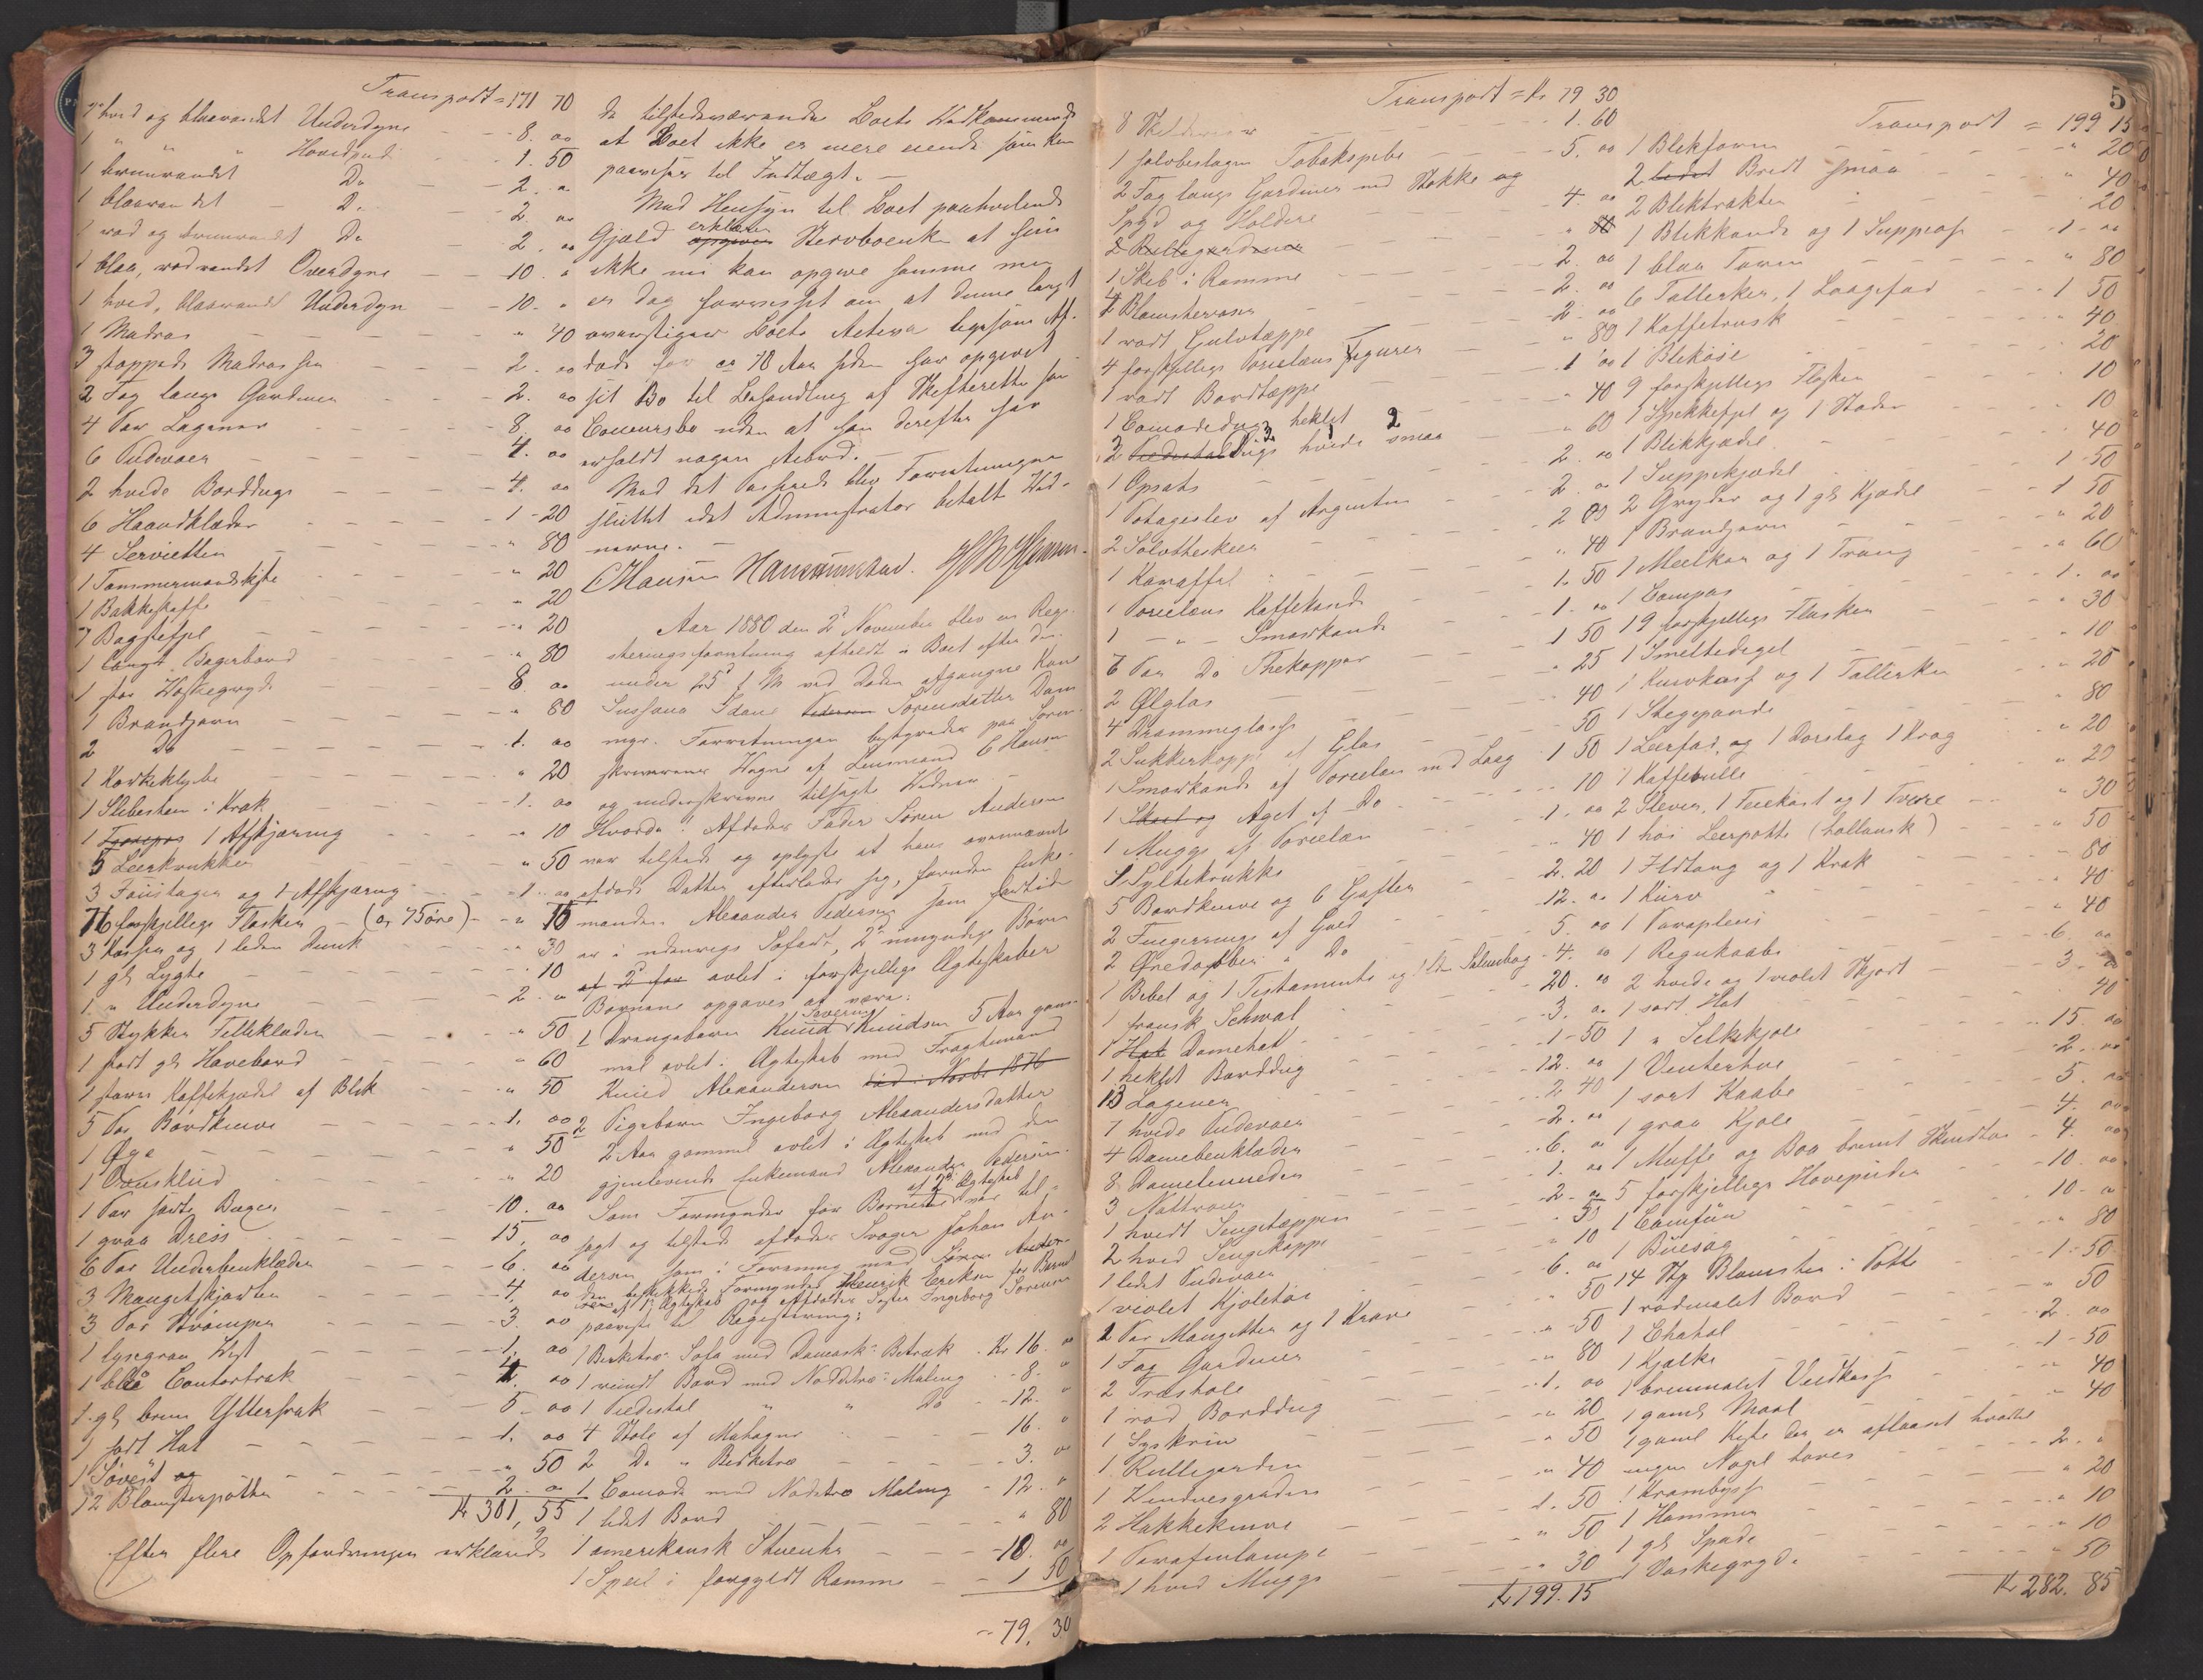 Transport = 171 70
1 hvid og blaarandet Underdyne - - 8. oo
1 " " " Hovedpude - 1. 50
1 brunrandet Do - - 2. "
1 blaarandet - Do - - 2. oo
1 rød og brunrandet Do - - 2. oo
1 blaa, rødrandet Overdyne - - 10. "
1 hvid, blaarandet Underdyne - 10. "
1 Madras - - - - " 40
3 stoppede Madrasser - - - 2. oo
2 Fag lange Gardiner - - - 2. oo
4 Par Lagener - - - - 8. oo
6 Pudevaer - - - - 4. oo
2 hvide Bordduge - - - 4. oo
6 Haandklæder - - - - 1 - 20
4 Servietter - - - - " 80
1 Tømmermandskiste - - - " 20
1 Bakkeskaffe - - - - " 20
7 Bagstefjel - - - - " 20
1 langt Bagerbord - - - " 80
1 stor Vaskegryde - - - 8. oo
1 Brandjern - - - - " 80
2 Do - - - - 1. oo
1 Korkeklybe - - - - " 20
1 Slibesten i Krak - - - 1. oo
1 1 Afskjæring - - - " 10
5 Leerkrukker - - - - " 50
3 Foustager og 1 Afskjæring - - 1. oo
76 forskjellige Flasker - (a 75 øre) - " 75
3 Kasser og 1 leden Dunk - - " 30
1 gl. Lygte - - - - " 10
1 " Underdyne - - - - 2. "
5 Stykker Filleklæder - - - " 50
1 sort gl. Havebord - - - " 60
1 større Kaffekjedel af Blik - - " 50
5 Par Bordknive - - - 1. oo
1 Øxe - - - - " 50
1 - - - - " 20
1 Par sorte Buxer - - - 10. oo
1 graa Dress - - - - 15. oo
6 Par Underbenklæder - - - 6. oo
3 Mangetskjorter - - - 4. oo
3 Par Strømper - - - 3. oo
1 lysegraa Vest - - - 1. oo
1 blaa Contorfrak - - - 4. oo
1 gl. brun Ytterfrak - - - 5. oo
1 sort Hat - - - - 1. oo
1 Søvest og - - - - " 50
12 Blomsterpotter - - - 2. "
Kr 301, 55
Efter flere Opfordringer erklærede
de tilstedeværende Boets Vedkommende
at Boet ikke er mere eiende som kan
paavises til Indtægt. -
Med Hensyn til Boet paahvilende
Gjæld erklærer opgiver Stervboenken at hun
ikke nu kan opgive samme men
er dog forvisset om at denne langt
overstiger Boets Activa ligesom Af-
døde for ca 10 Aar siden har opgivet
sit Bo til Behandling af Skifteretten som
Concursbo uden at han derefter har
erholdt nogen Accord. -
Med det Passerede blev Forretningen
sluttet idet Administrator betalte Vid-
nerne. -
C Hansen Hans
Aar 1880 den 2d November blev en Regi-
streringsforretning afholdt i Boet efter den
under 25d f M ved Døden afgangne Kone
Sussana Idane Pedersen Sørensdatter Dam
myr. Forretningen bestyredes paa Soren-
skriverens Vegne af Lensmand C Hansen
og underskrevne tilsagte Vidner -
Hvorda: Afdødes Fader Søren Andersen
var tilstede og oplyste at hans ovennævnte
afdøde Datter efterlader sig, foruden Enke-
manden Alexander Pedersen som for tiden
er i udenrigs Søfart, 2de umyndige Børn
af 2d avlet i forskjellige Ægteskaber
Børnene opgaves at være:
1 Drengebarn Knud Severin Knudsen 5 Aar gam-
mel avlet i Ægteskab med Fragtemand
Knud Alexandersen død i Novbr 1876
2 Pigebarn Ingeborg Alexandersdatter
2 Aar gammel avlet i Ægteskab med den
gjenlevende Enkemand Alexander Pedersen.
Som Formynder for Børnene af 2d Ægteskab var til-
sagt og tilstede afdødes Svoger Johan An-
dersen som i Forening med Søren Ander-
sen beskikkede Formynder Henrik Eriksen for Barnet
af 1ste Ægteskab og Afdødes Søster Ingeborg Sørensen
paaviste til Registrering:
1 Birketræ Sofa med Damask-Betræk - Kr 16. oo
1 rundt Bord med Nøddetræ-Maling - 8. "
1 Piedestal " " Do - 12. "
4 Stole af Mahagni - - - 16. "
2 Do " Birketræ - - - 3. oo
1 Comode med Nødetræ Maling - 12. "
1 lidet Bord - - - " 80
1 amerikansk Stueuhr - - - 10. oo
1 Speil i forgyldt Ramme - - 1 50
- 79, 30
5
Transport = Kr 79 30
8 Skilderier - - - 1. 60
1 sølvbeslagen Tobakspibe - - 5. oo
2 Fag lange Gardiner med Stokke og
Spyd og Holdere - - - 4. oo
2 Rullegardiner - - - " 80
1 Skib i Ramme - - - 2. oo
4 Blomstervaser - - - 2. oo
1 rødt Gulvtæppe - - - 2. oo
4 forskjellige Porcelæns Figurer - - " 80
1 rødt Bordtæppe - - - 1 oo
1 Comodedug heklet - - - " 40
2 Piedestalduge hvide smaa - - " 60
1 Opsats - - - 2. oo
1 Potageslev af Argentin - - 2. "
2 Sølvtheskeer - - - 2 00
1 Karaffel - - - " 40
1 Porcelæns Kaffekande - - 1. 50
1 - " - Smørkande - - 1. oo
7 Par Do Thekopper - - 1 50
2 Ølglas - - - " 25
4 Drammeglass - - - " 40
2 Sukkerkopper af Glas - - " 50
1 Smørkande af Porcelæn med Laag - 1 50
1 Skaal og Aget af Do - - " 10
1 Mugge af Porcelæn - - 1. oo
1 Syltekrukke - - - " 40
5 Bordknive og 6 Gafler - - 2. 20
2 Fingerringe af Guld - - 12. "
2 Øredobber " Do - - 5. oo
1 Bibel og 1 Testamente og 1 liden Salmebog - 4. oo
1 fransk Schwal - - - 20. oo
1 Hat Damehat - - - 3. "
1 heklet Borddug - - - 1 - 50
13 Lagener - - - 12. oo
7 hvide Pudevaer - - - 2 40
4 Damebenklæder - - - 2. oo
8 Damelinneder - - - 6. "
3 Nattrøier - - - 1. oo
1 hvidt Sengetæppen - - - 2. oo
2 hvid Sengekappe - - - " 50
1 lidet Pudevaer - - - " 10
1 violet Kjoletøi - - - 6. oo
1 Par Mangetter og 1 Krave - - " 50
1 Fag Gardiner - - - " 50
2 Træstole - - - " 80
1 rød Borddug - - - 1. oo
1 Syskrin - - - " 20
1 Rullegardin - - - " 50
1 Vinduesgardin - - - " 40
2 Hakkeknive - - - 1. 50
1 Parafinlampe - - - " 50
1 hvid Mugge - - - " 30
Kr 199. 15
Transport = 199 15
1 Blikform - - - " 20
2 Bredt smaa - - - " 40
2 Bliktrakter - - - " 20
1 Blikkande og 1 Suppeøse - - 1 - oo
1 blaa Tarin - - - " 80
6 Tallerker, 1 Laagefad - - 1 50
1 Kaffetrusk - - - " 40
1 Blikøse - - - " 20
9 forskjellige Flasker - - " 10
1 Spekkefjel og 1 Stader - - " 10
1 Blikkjedel - - - " 40
1 Suppekjedel - - - 1 - 50
2 Gryder og 1 gl. Kjedel - - 1 50
1 Brandjern - - - " 20
1 Meelkar og 1 Traug - - " 60
1 Compas - - - 1. oo
19 forskjellige Flasker - - " 30
1 Smeltedigel - - - " 10
1 og 1 Tallerken - - " 25
1 Stegepande - - - " 80
1 Leerfad, og 1 Dørslag 1 Krog - " 20
1 Kaffemølle - - - " 20
2 Slever, 1 og 1 Tvære - - " 30
1 høi Leerpotte (hollansk) - - " 50
1 Ildtang og 1 Krak - - " 80
1 Kurv - - - " 40
1 Paraplui - - - " 40
1 Regnkaabe - - - 6. oo
2 hvide og 1 violet Skjørt - - 3. "
1 sort Hat - - - " 40
1 " Silkekjole - - - 15. oo
1 Vinterhue - - - 2. oo
1 sort Kaabe - - - 5. oo
1 graa Kjole - - - 4. oo
1 Muffe og Boa brunt Skindtøi - 4. oo
5 forskjellige Hovepuder - - 10. oo
1 Comfur - - - 10. "
1 Buesag - - - " 80
14 Stk Blomster i Potte - - 1 - 50
1 rødmalet Bord - - - " 50
1 Chatol - - - 2. oo
1 Kjælke - - - 1 - 50
1 brunmalet Vedkasse - - " 40
1 gamel Maal - - - " 40
1 gaml. Kiste der er aflaaset hvortil
ingen Nøgel haves - - 2. "
1 Krambøsse - - - " 20
1 Hammer - - - " 10
1 gl. Spade - - - " 10
1 Vaskegryde - - - " 50
Kr 282. 85